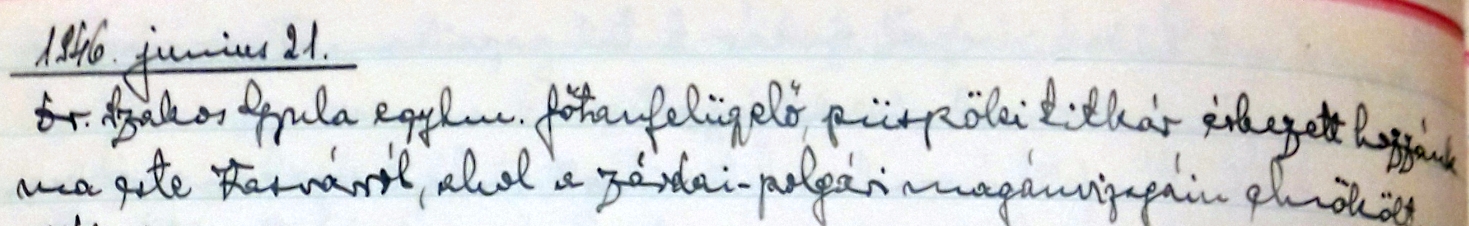 1946. junius 21.
Dr. Szakos Gyula egyhm. főtanfelügelő, püspöki titkár érkezett hozzánk
ma este Vasvárról, ahol a zárdai-polgári magánvizsgáin elnökölt